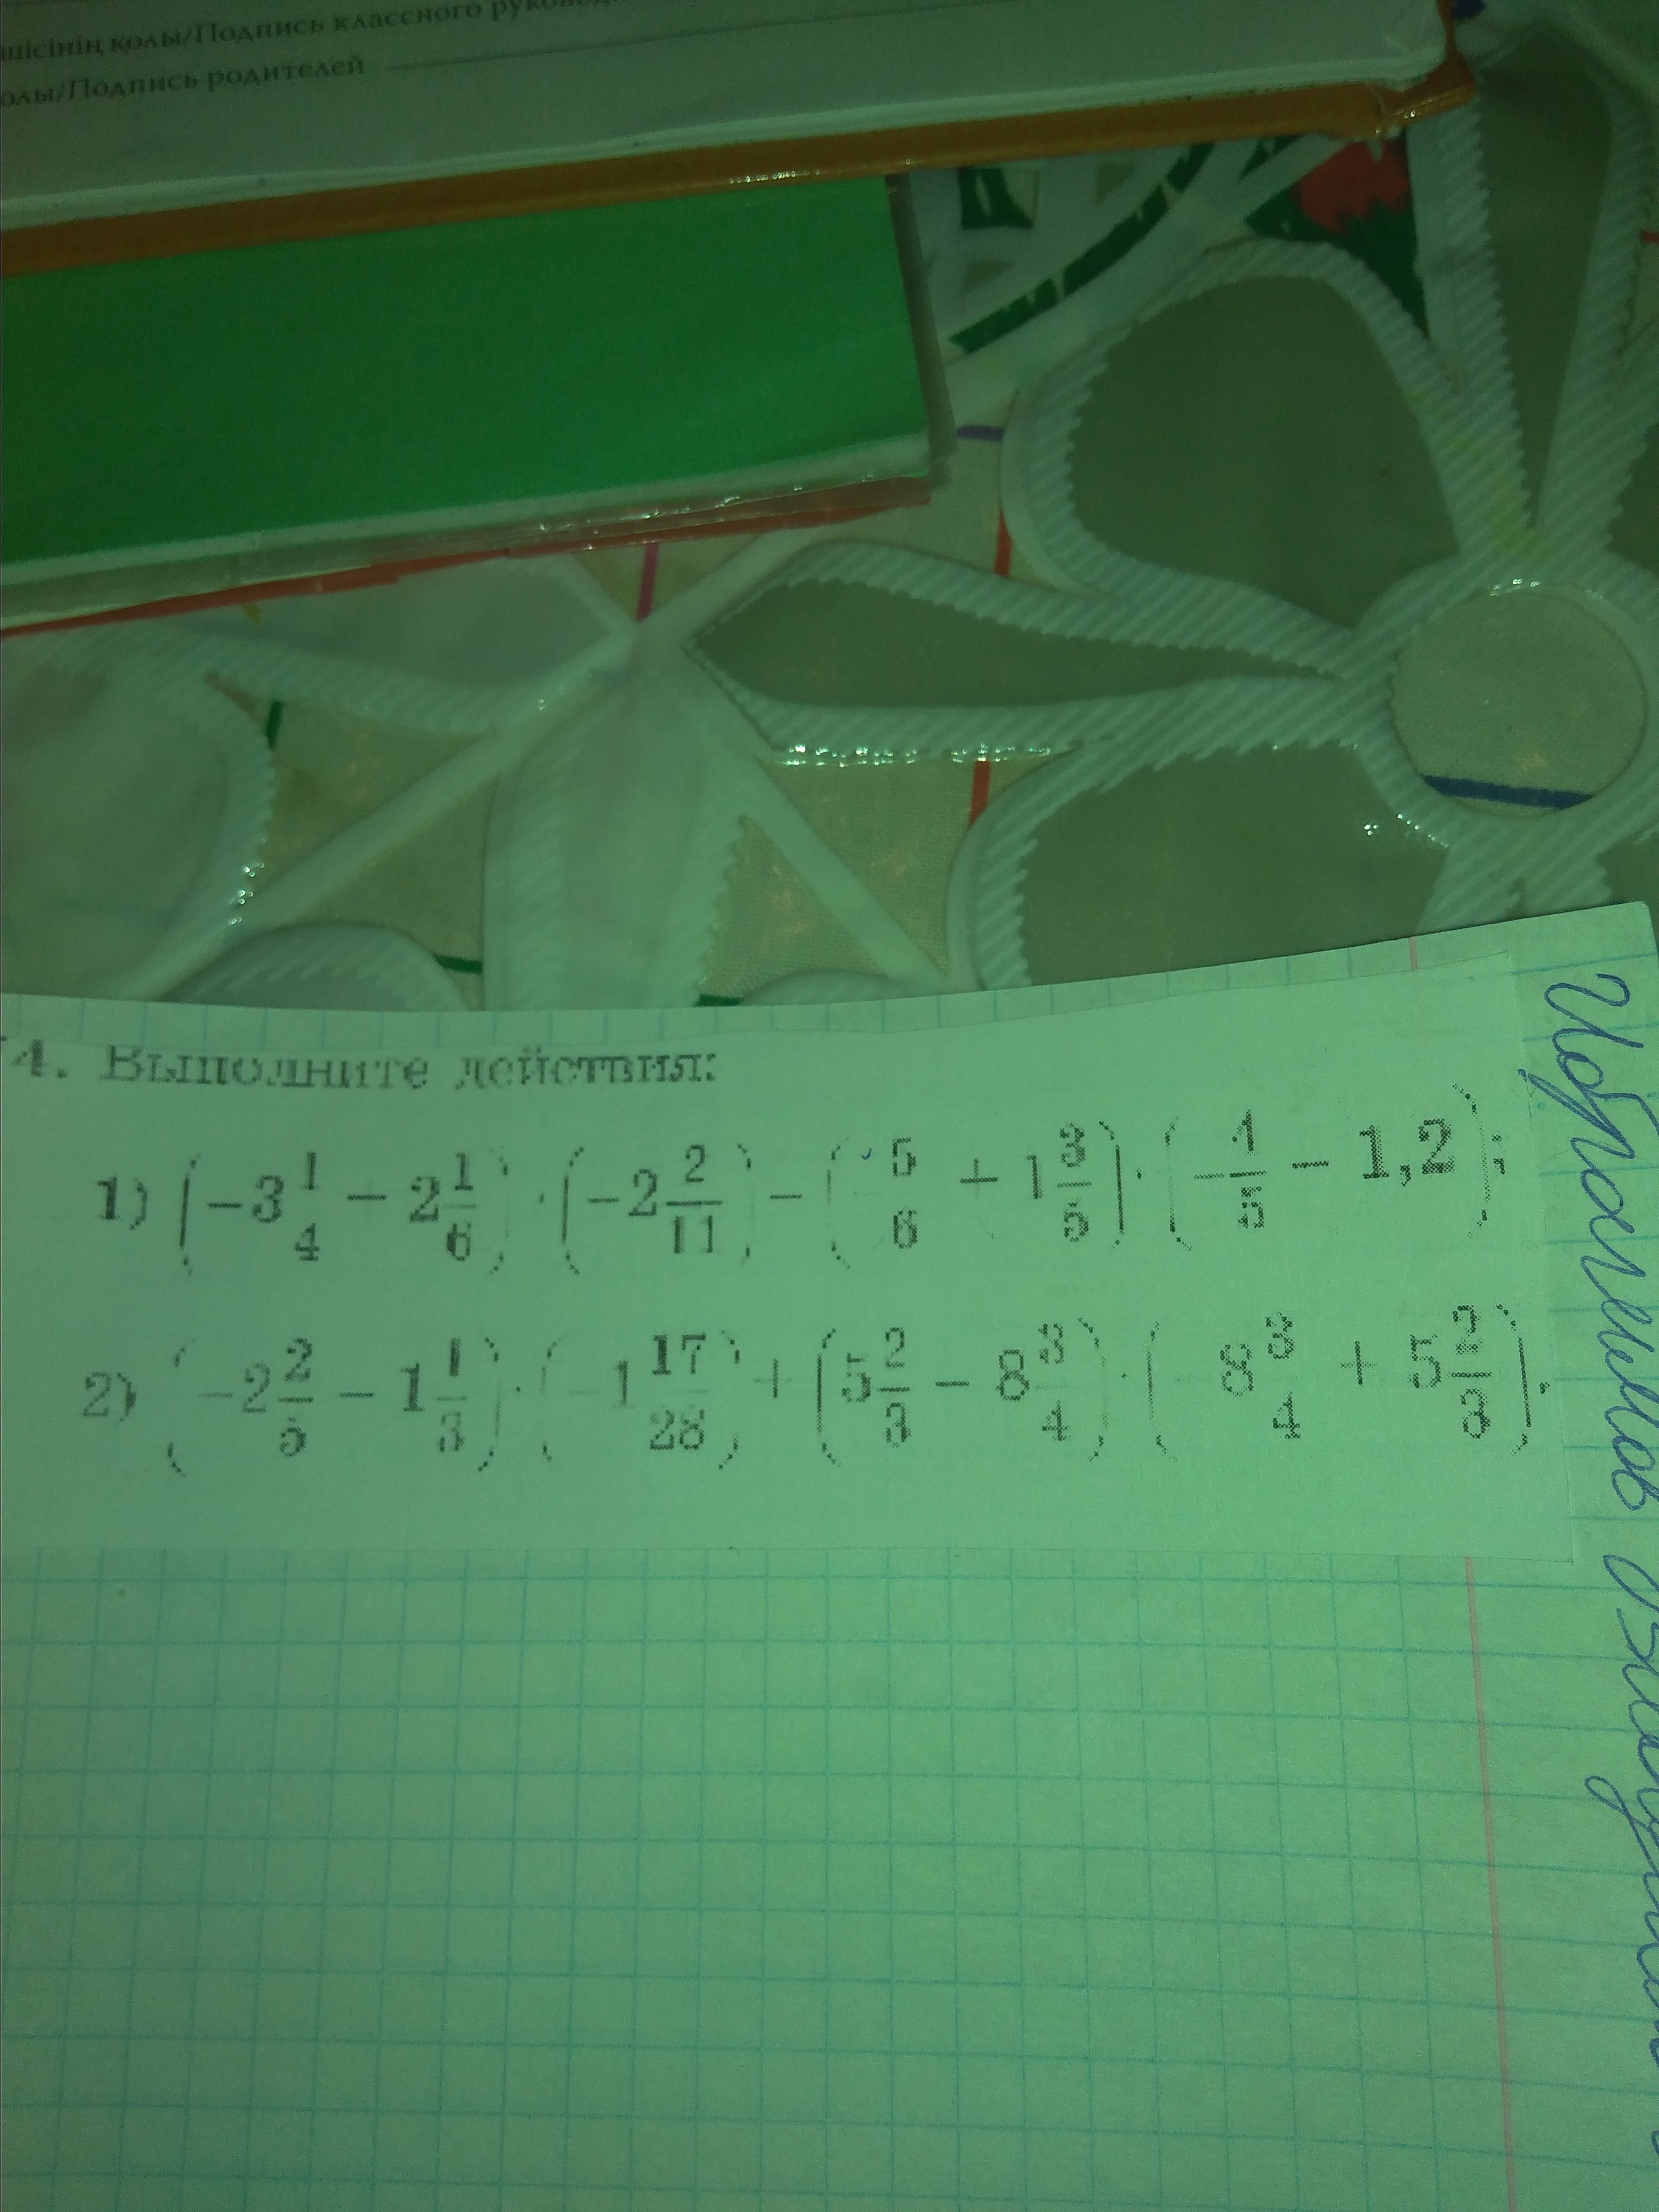 қолы/Подпись классного
/Подпись родителей
4. Выполните действия:
1) (-3 1/4 - 2 1/6) · (-2 2/11) - (- 5/6 + 1 3/5) · (- 4/5 - 1,2);
2) (-2 2/5 - 1 1/3) · (-1 17/28) + (5 2/3 - 8 3/4) · (8 3/4 + 5 2/3).